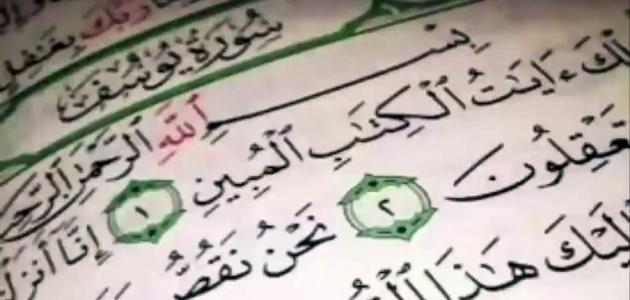 رَبُّكَ بِغَٰفِلٍ
سُورَةُ يُوسُفَ
بِسْمِ ٱللَّهِ ٱلرَّحْمَٰنِ ٱلرَّحِيمِ
لْكَ ءَايَٰتُ ٱلْكِتَٰبِ ٱلْمُبِينِ ١ إِنَّآ أَنزَلْ
عْقِلُونَ ٢ نَحْنُ نَقُصُّ
إِلَيْكَ هَٰذَا ٱلْقُ